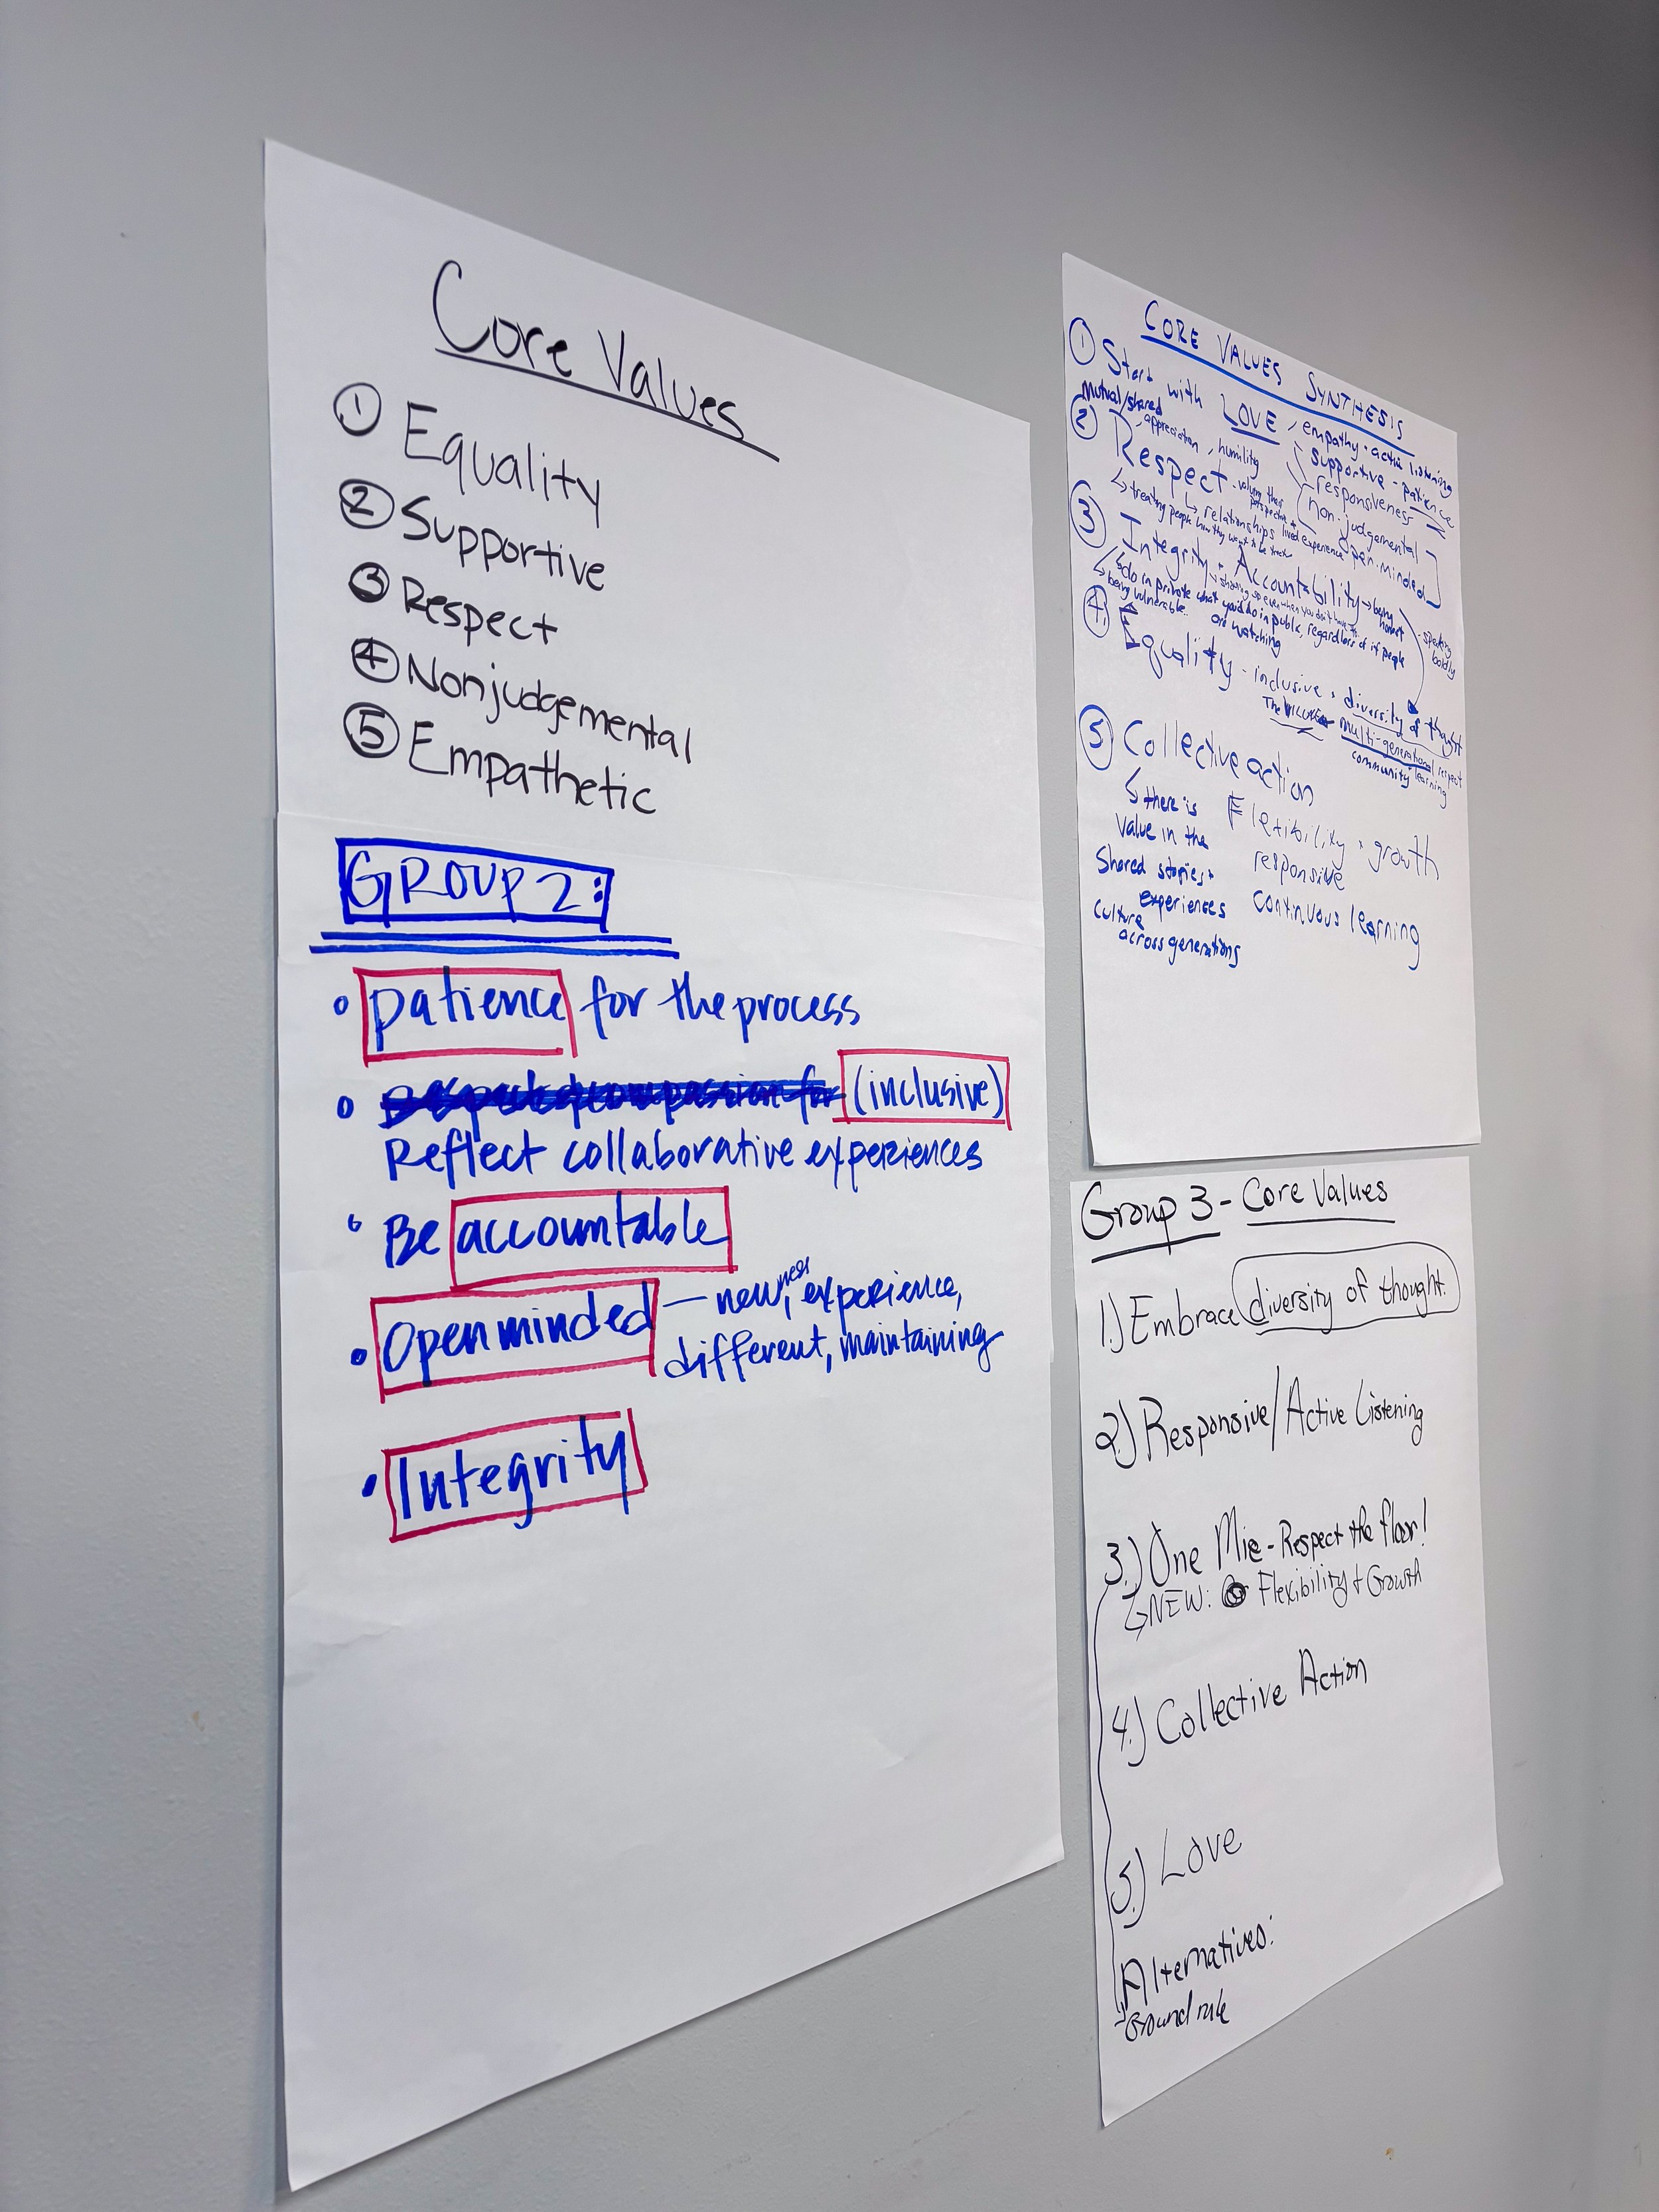 Core Values
① Equality
② Supportive
③ Respect
④ Nonjudgemental
⑤ Empathetic
GROUP 2:
• patience for the process
• (inclusive)
Reflect collaborative experiences
• Be accountable
• Open minded — newness, experience,
different, maintaining
• Integrity
CORE VALUES SYNTHESIS
① Start with LOVE, empathy · active listening
supportive - patience
responsiveness
non-judgemental
open-minded
Mutual/shared
appreciation, humility
② Respect - valuing their
perspective +
↳ relationships lived experience
↳ treating people how they want to be
③ Integrity + Accountability → being
honest
↳ do in private what you do in public, regardless of if people
are watching
↳ being vulnerable
↳ showing up even when you don't
speaking
boldly
④ Equality - inclusive, diversity of thought
The multi-generational respect
community learning
⑤ Collective action
↳ there is
value in the
shared stories +
experiences
culture
across generations
Flexibility + growth
responsive
continuous learning
Group 3 - Core Values
1.) Embrace diversity of thought.
2.) Responsive/Active Listening
3.) One Mic - Respect the floor!
↳ NEW: Flexibility + Growth
4.) Collective Action
5.) Love
Alternatives:
Ground rule